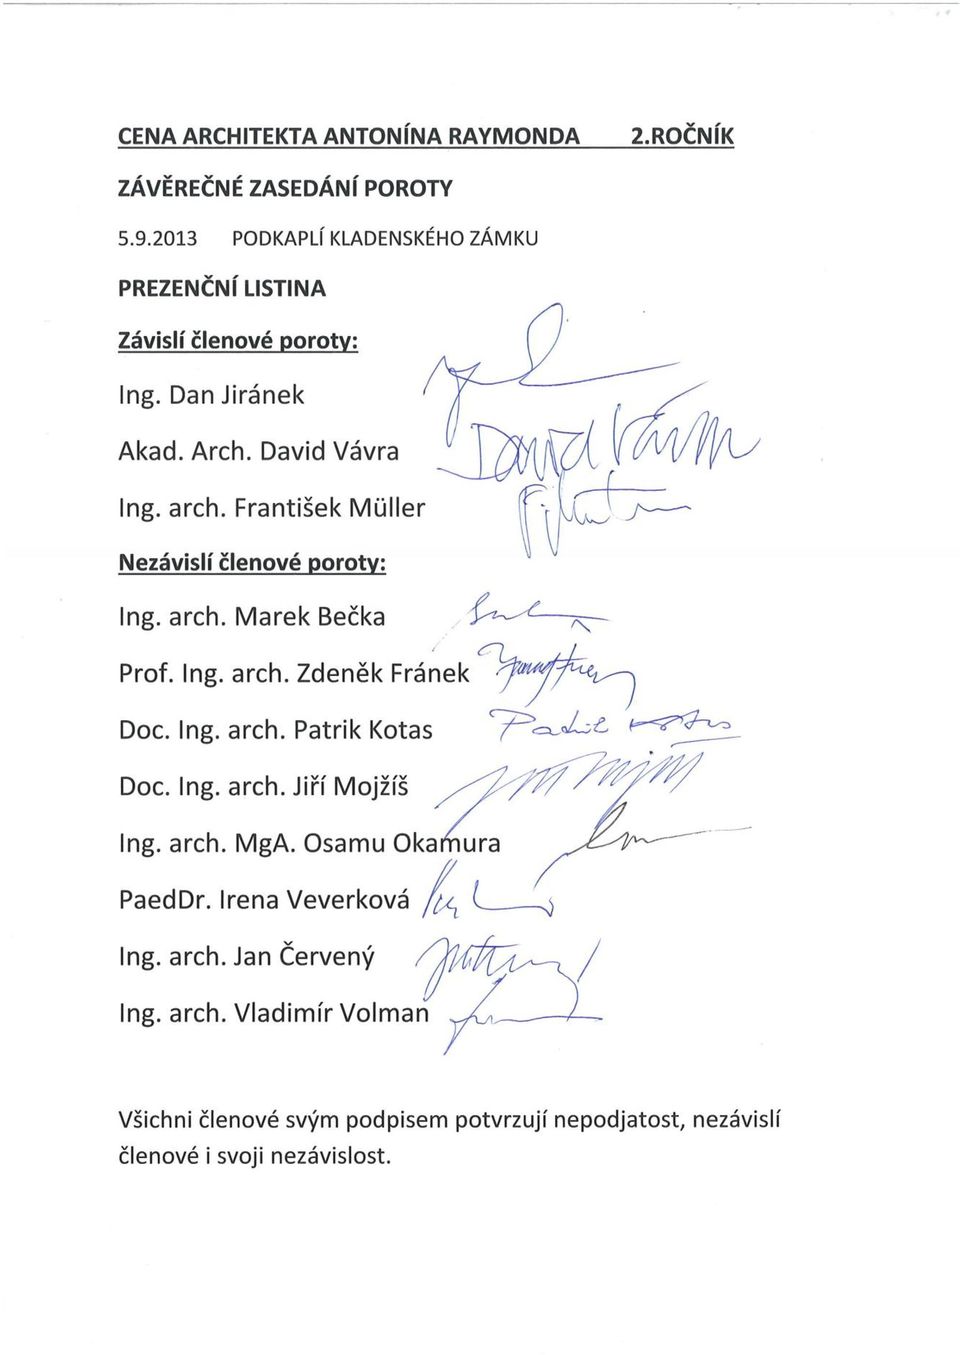 CENA ARCHITEKTA ANTONÍNA RAYMONDA 2.ROČNÍK
ZÁVĚREČNÉ ZASEDÁNÍ POROTY
5.9.2013 PODKAPLÍ KLADENSKÉHO ZÁMKU
PREZENČNÍ LISTINA
Závislí členové poroty:
Ing. Dan Jiránek
Akad. Arch. David Vávra David Vávra
Ing. arch. František Müller
Nezávislí členové poroty:
Ing. arch. Marek Bečka
Prof. Ing. arch. Zdeněk Fránek
Doc. Ing. arch. Patrik Kotas Patrik Kotas
Doc. Ing. arch. Jiří Mojžíš
Ing. arch. MgA. Osamu Okamura
PaedDr. Irena Veverková
Ing. arch. Jan Červený
Ing. arch. Vladimír Volman
Všichni členové svým podpisem potvrzují nepodjatost, nezávislí
členové i svoji nezávislost.